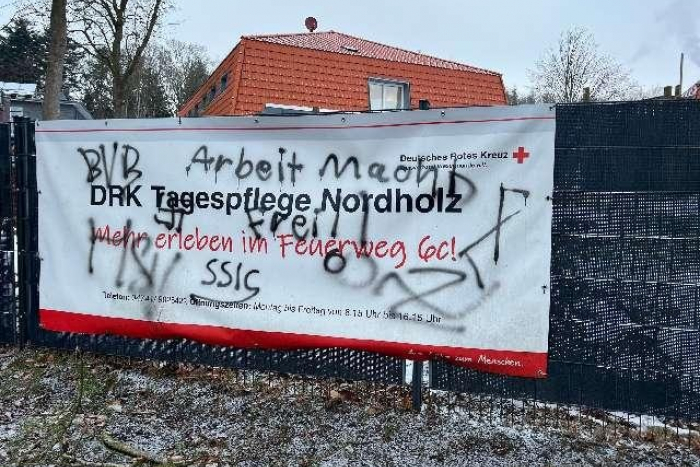 Deutsches Rotes Kreuz
BVB Arbeit Macht
DRK Tagespflege Nordholz
Frei!
Mehr erleben im Feuerweg 6c!
SSIG
Telefon: Öffnungszeiten: Montag bis Freitag von 8.15 Uhr bis 16.15 Uhr
zum Menschen.